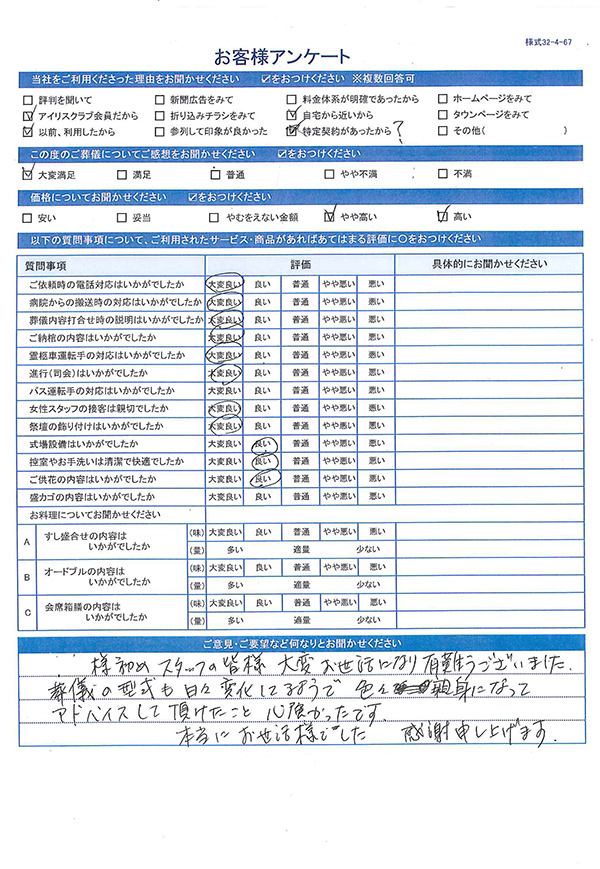 様式32-4-67
お客様アンケート
当社をご利用くださった理由をお聞かせください ☑をおつけください ※複数回答可
□ 評判を聞いて □ 新聞広告をみて □ 料金体系が明確であったから □ ホームページをみて
☑ アイリスクラブ会員だから □ 折り込みチラシをみて ☑ 自宅から近いから □ タウンページをみて
☑ 以前、利用したから □ 参列して印象が良かった ☑ 特定契約があったから ? □ その他( )
この度のご葬儀についてご感想をお聞かせください ☑をおつけください
☑ 大変満足 □ 満足 □ 普通 □ やや不満 □ 不満
価格についてお聞かせください ☑をおつけください
□ 安い □ 妥当 □ やむをえない金額 ☑ やや高い ☑ 高い
以下の質問事項について、ご利用されたサービス・商品があればあてはまる評価に○をおつけください
質問事項 評価 具体的にお聞かせください
ご依頼時の電話対応はいかがでしたか 大変良い 良い 普通 やや悪い 悪い
病院からの搬送時の対応はいかがでしたか 大変良い 良い 普通 やや悪い 悪い
葬儀内容打合せ時の説明はいかがでしたか 大変良い 良い 普通 やや悪い 悪い
ご納棺の内容はいかがでしたか 大変良い 良い 普通 やや悪い 悪い
霊柩車運転手の対応はいかがでしたか 大変良い 良い 普通 やや悪い 悪い
進行(司会)はいかがでしたか 大変良い 良い 普通 やや悪い 悪い
バス運転手の対応はいかがでしたか 大変良い 良い 普通 やや悪い 悪い
女性スタッフの接客は親切でしたか 大変良い 良い 普通 やや悪い 悪い
祭壇の飾り付けはいかがでしたか 大変良い 良い 普通 やや悪い 悪い
式場設備はいかがでしたか 大変良い 良い 普通 やや悪い 悪い
控室やお手洗いは清潔で快適でしたか 大変良い 良い 普通 やや悪い 悪い
ご供花の内容はいかがでしたか 大変良い 良い 普通 やや悪い 悪い
盛カゴの内容はいかがでしたか 大変良い 良い 普通 やや悪い 悪い
お料理についてお聞かせください
A すし盛合せの内容は いかがでしたか (味) 大変良い 良い 普通 やや悪い 悪い
(量) 多い 適量 少ない
B オードブルの内容は いかがでしたか (味) 大変良い 良い 普通 やや悪い 悪い
(量) 多い 適量 少ない
C 会席箱膳の内容は いかがでしたか (味) 大変良い 良い 普通 やや悪い 悪い
(量) 多い 適量 少ない
ご意見・ご要望など何なりとお聞かせください
様初めスタッフの皆様 大変お世話になり有難うございました.
葬儀の型式も日々変化してるようで 色々 親身になって
アドバイスして頂けたこと 心強かったです.
本当にお世話様でした 感謝申し上げます.